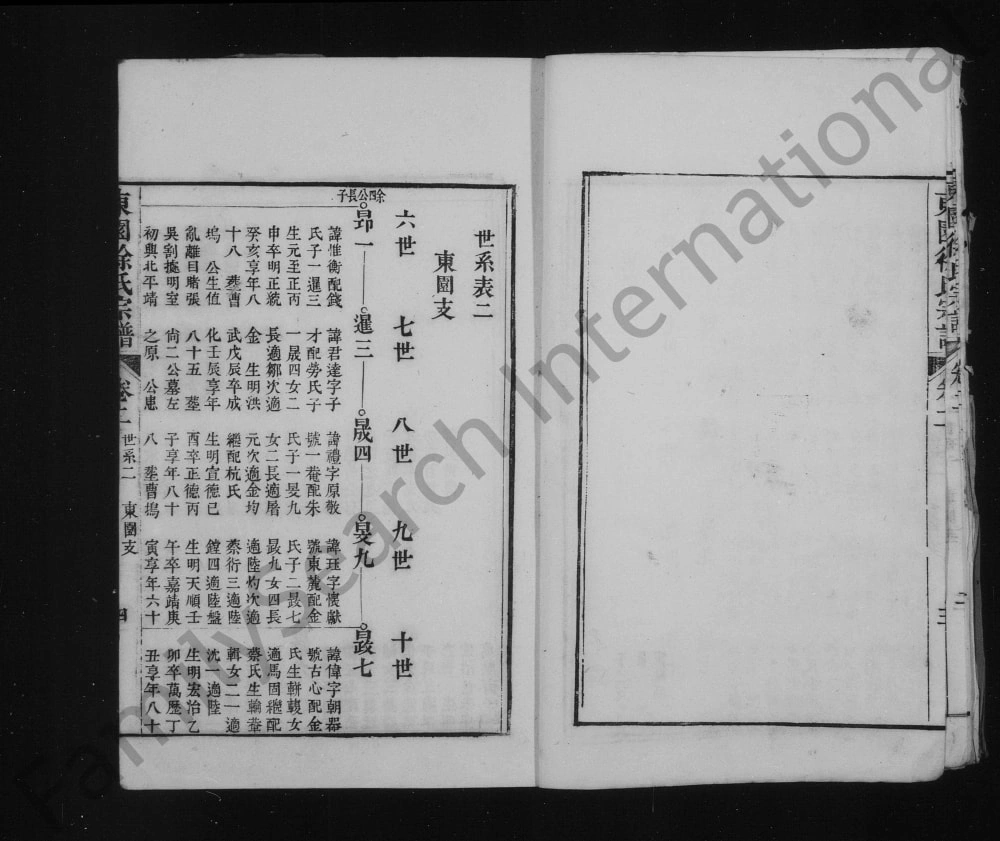 東園徐氏宗譜
卷二
三
世系表二
東園支
六世 七世 八世 九世 十世
余四公長子
昴一 暹三 晟四 旻九 晸七
諱惟衡配錢
氏子一暹三
生元至正丙
申卒明正統
癸亥享年八
十八 葬曹
塢 公生值
亂離目睹張
吳割據明室
初興北平靖
諱君達字子
才配勞氏子
一晟四女二
長適鄒次適
金 生明洪
武戊辰卒成
化壬辰享年
八十五 葬
尙二公墓左
之原 公患
諱禮字原敬
號一菴配朱
氏子一旻九
女二長適屠
元次適金均
繼配杭氏
生明宣德己
酉卒正德丙
子享年八十
八 葬曹塢
諱玨字懷獻
號東麓配金
氏子二晸七
晸九女四長
適陸灼次適
蔡衍三適陸
鏜四適陸盤
生明天順壬
午卒嘉靖庚
寅享年六十
諱偉字朝器
號古心配金
氏生輧輹女
適馬固繼配
蔡氏生輪輋
輯女二一適
沈一適陸
生明宏治乙
卯卒萬歷丁
丑享年八十
東園徐氏宗譜
卷二
世系二 東園支
四
FamilySearch International